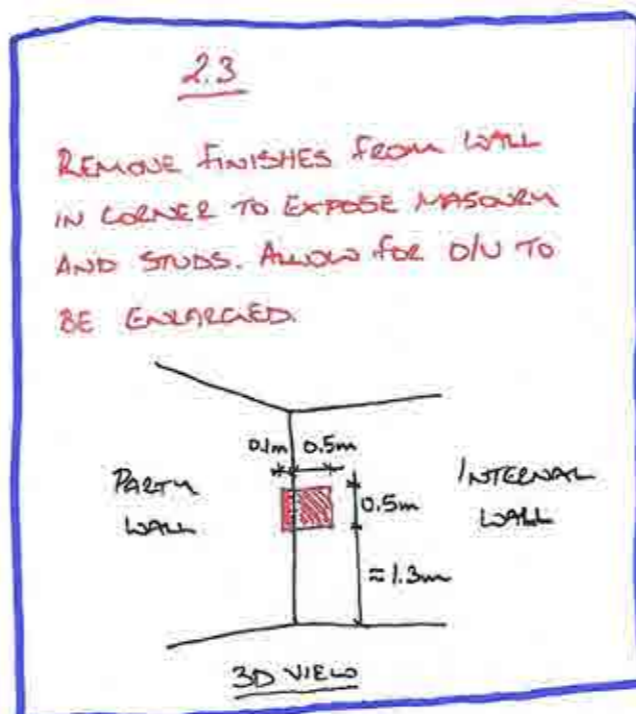 2.3
REMOVE FINISHES FROM WALL
IN CORNER TO EXPOSE MASONRY
AND STUDS. ALLOW FOR O/U TO
BE ENLARGED.
0.1m 0.5m
PARTY
WALL
0.5m
INTERNAL
WALL
≈1.3m
3D VIEW